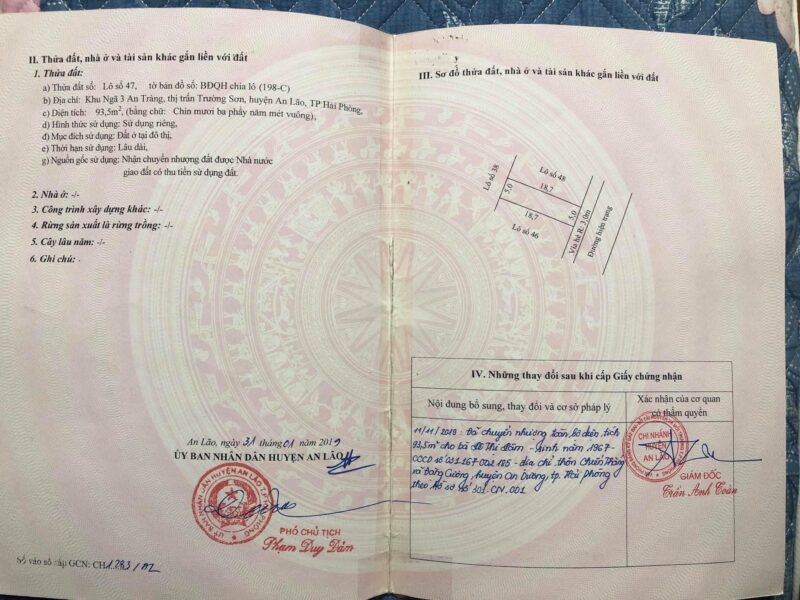 II. Thửa đất, nhà ở và tài sản khác gắn liền với đất
1. Thửa đất:
a) Thửa đất số: Lô số 47, tờ bản đồ số: BĐQH chia lô (198-C)
b) Địa chỉ: Khu Ngã 3 An Tràng, thị trấn Trường Sơn, huyện An Lão, TP Hải Phòng,
c) Diện tích: 93,5m², (bằng chữ: Chín mươi ba phẩy năm mét vuông),
d) Hình thức sử dụng: Sử dụng riêng,
đ) Mục đích sử dụng: Đất ở tại đô thị,
e) Thời hạn sử dụng: Lâu dài,
g) Nguồn gốc sử dụng: Nhận chuyển nhượng đất được Nhà nước
giao đất có thu tiền sử dụng đất.
2. Nhà ở: -/-
3. Công trình xây dựng khác: -/-
4. Rừng sản xuất là rừng trồng: -/-
5. Cây lâu năm: -/-
6. Ghi chú:
An Lão, ngày 31 tháng 01 năm 2019
ỦY BAN NHÂN DÂN HUYỆN AN LÃO
PHÓ CHỦ TỊCH
Phạm Duy Dản
Số vào sổ cấp GCN: CH1.283/
III. Sơ đồ thửa đất, nhà ở và tài sản khác gắn liền với đất
Lô số 38
Lô số 48
18,7
5,0
5,0
18,7
Lô số 46
Vỉa hè R: 3,0m
Đường hiện trạng
IV. Những thay đổi sau khi cấp Giấy chứng nhận
Nội dung bổ sung, thay đổi và cơ sở pháp lý
Xác nhận của cơ quan
có thẩm quyền
11/11/2019 - Đã chuyển nhượng toàn bộ diện tích
93,5m² cho bà Thị - sinh năm 1967 -
CCCD số 031.167. - địa chỉ thôn
xã Đặng Cương, huyện An Dương, tp. Hải Phòng
theo hồ sơ số 301.CN.001
CHI NHÁNH
HUYỆN
AN LÃO
GIÁM ĐỐC
Trần Anh Toàn